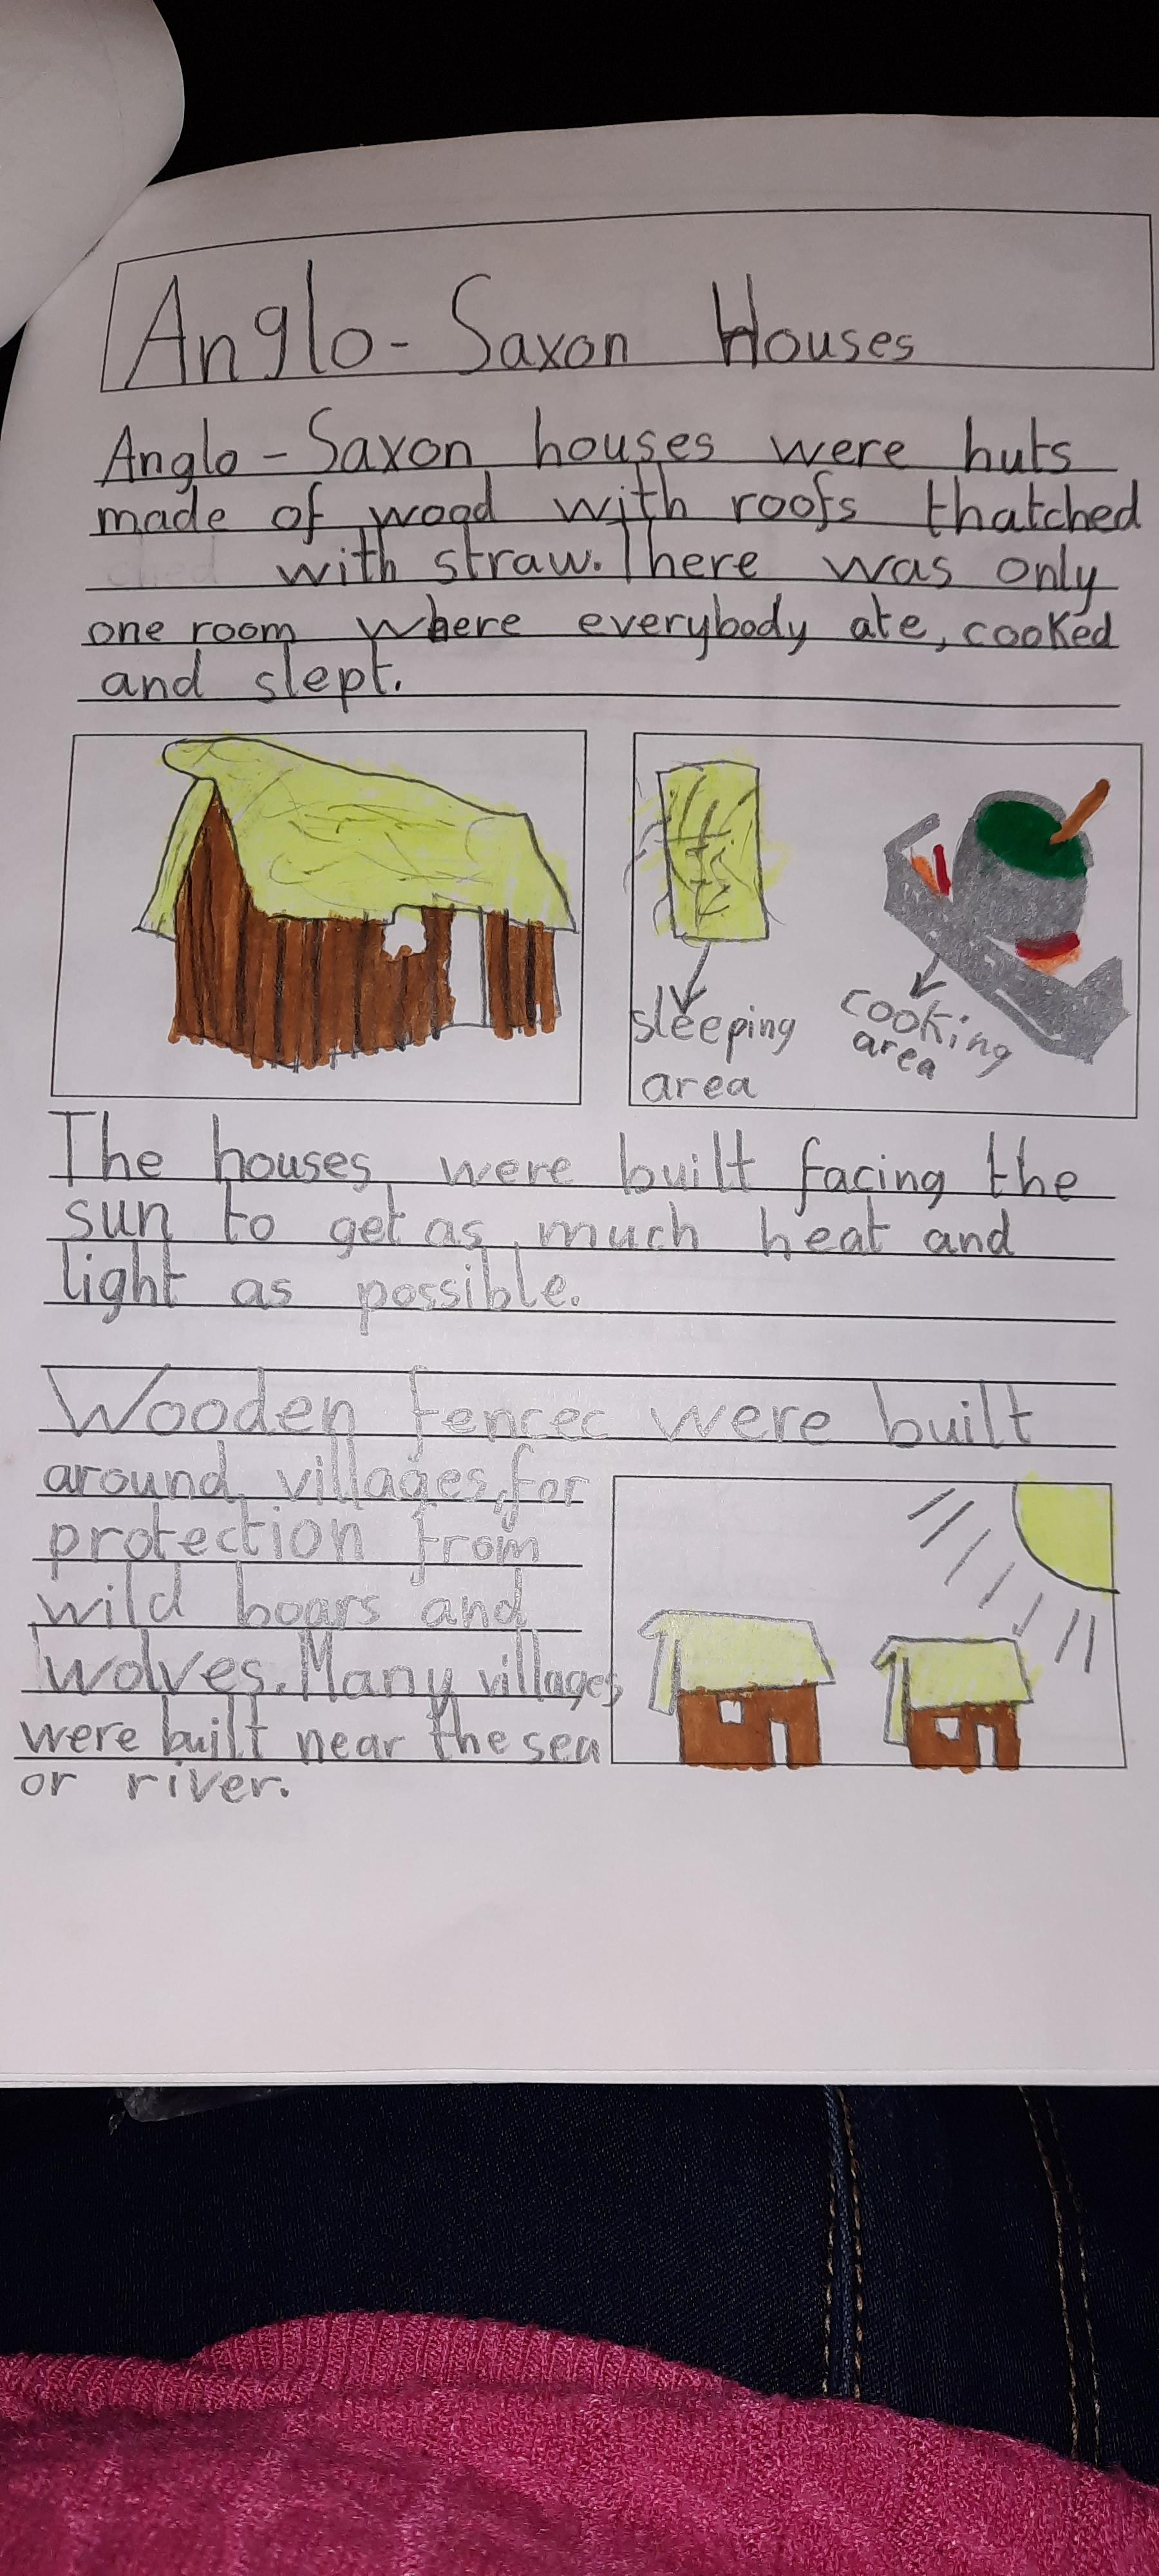 Anglo-Saxon Houses
Anglo-Saxon houses were huts
made of wood with roofs thatched
with straw. There was only
one room where everybody ate, cooked
and slept.
sleeping
area
cooking
area
The houses were built facing the
sun to get as much heat and
light as possible.
Wooden fencec were built
around villages, for
protection from
wild boars and
wolves. Many villages
were built near the sea
or river.